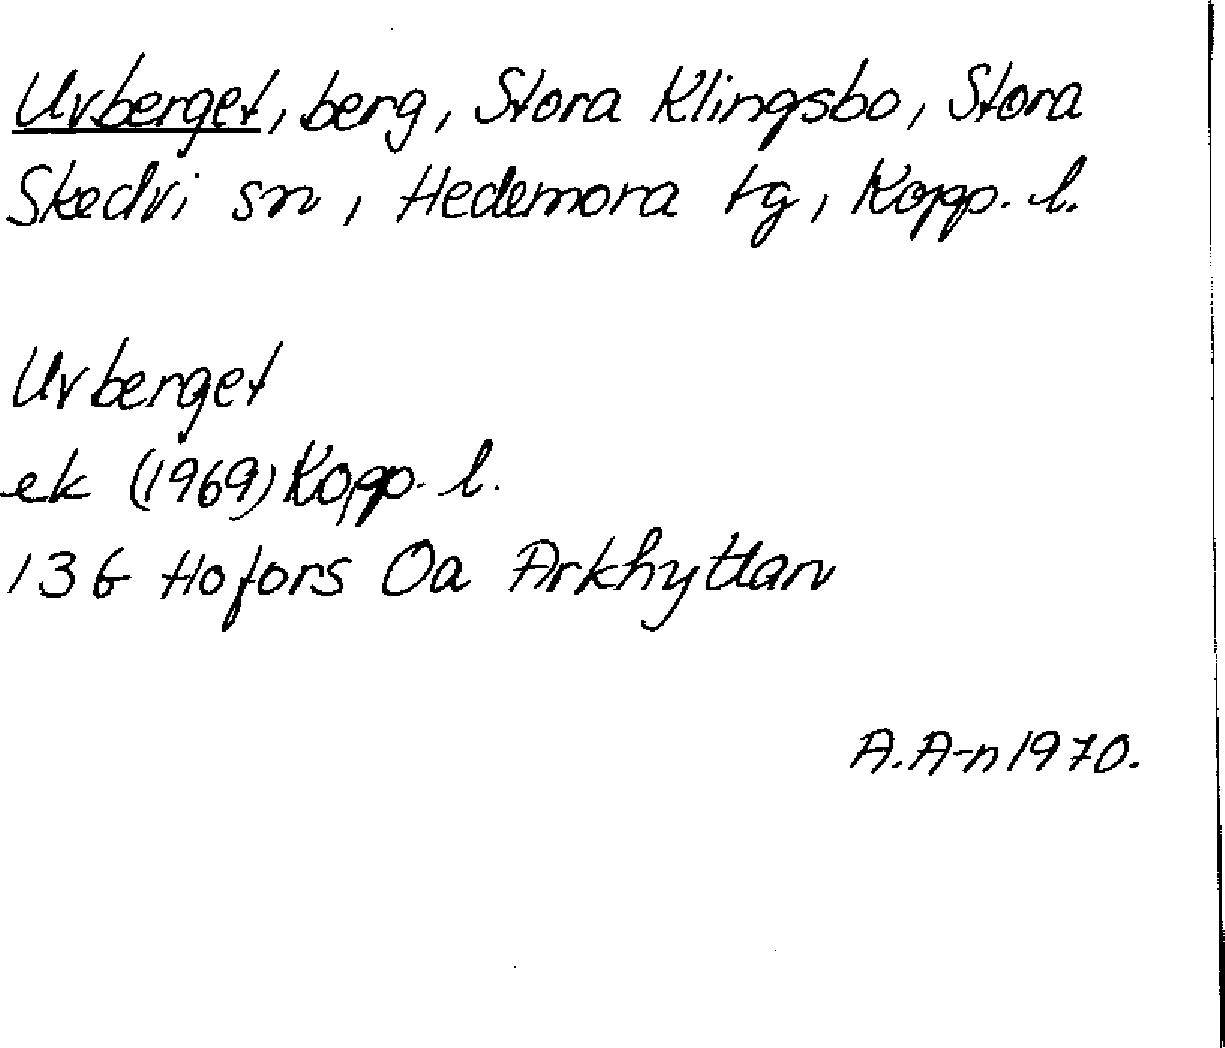 Uvberget, berg, Stora Klingsbo, Stora
Skedvi sn, Hedemora tg, Kopp. l.
Uvberget
ek (1969) Kopp. l.
13G Hofors 0a Arkhyttan
A. A-n 1970.